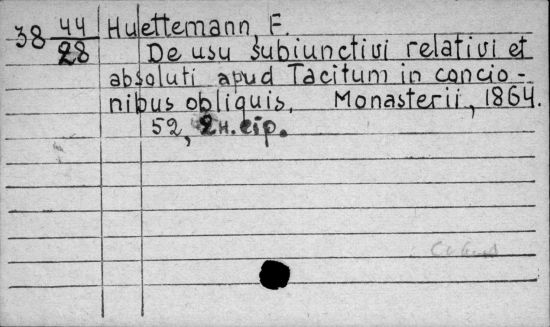 38 44/28 Huettemann, F.
De usu subiunctivi relativi et
absoluti apud Tacitum in concio-
nibus obliquis. Monasterii, 1864.
52, 2 н. стр.